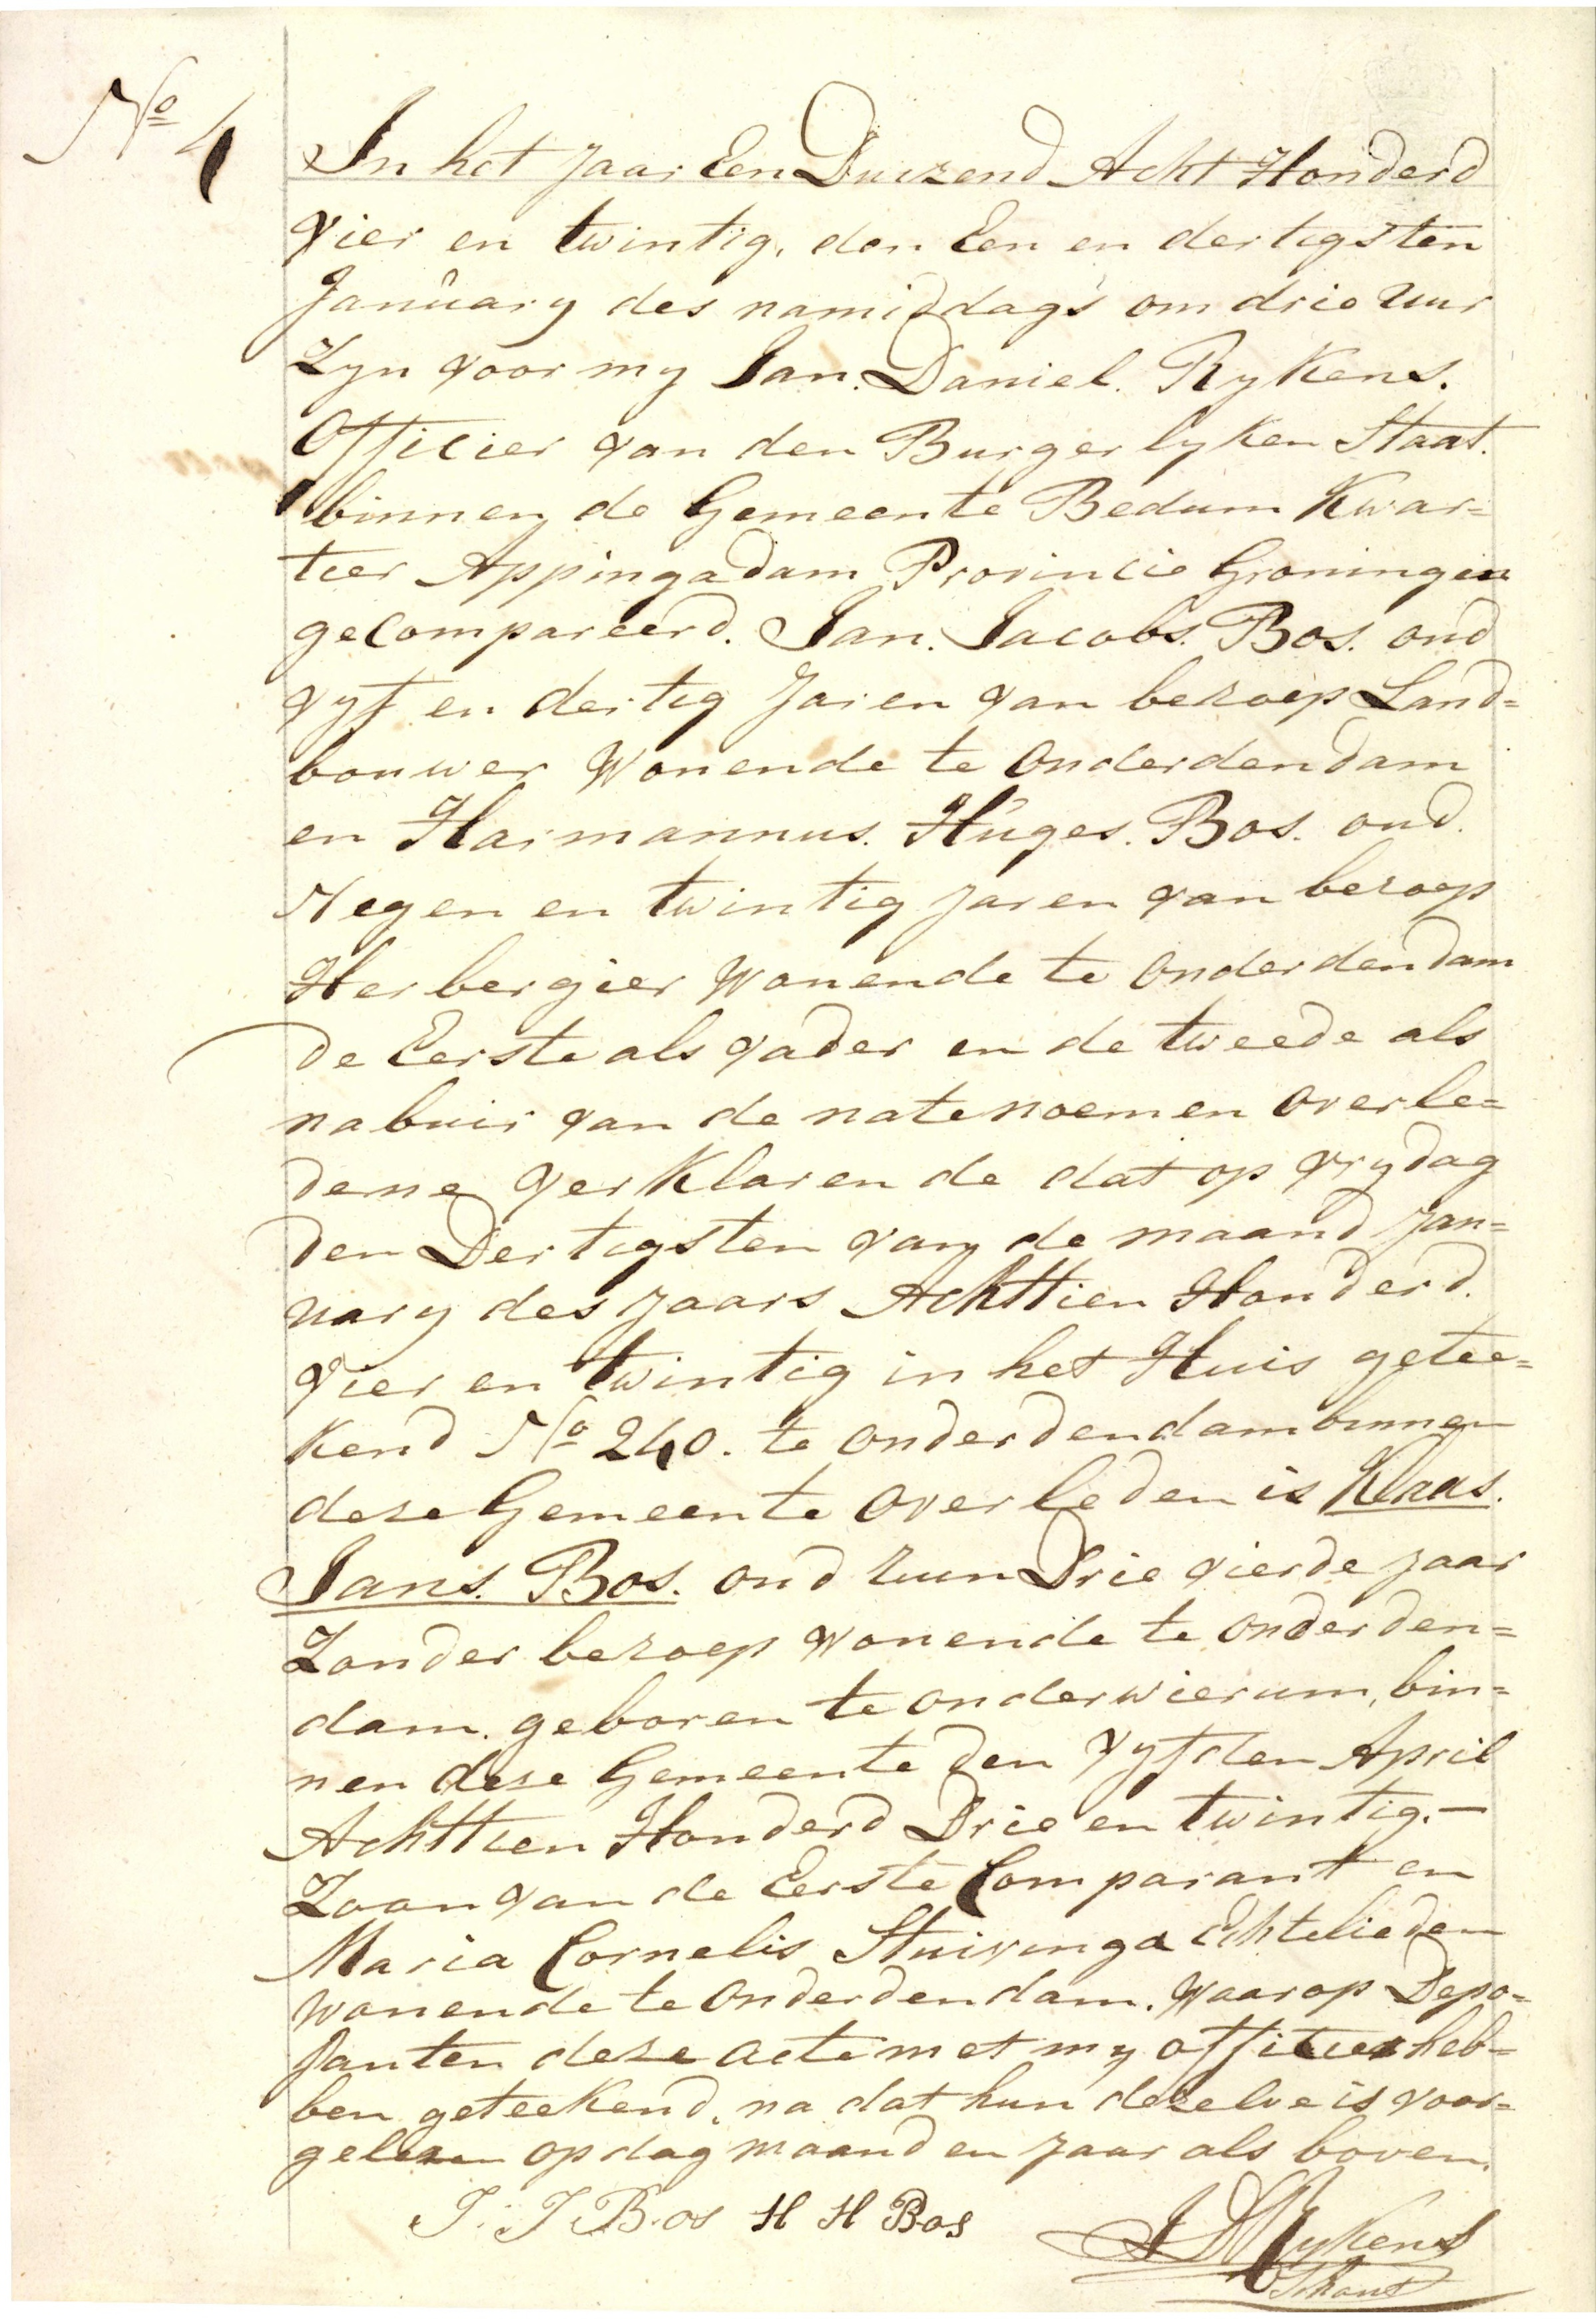 No 4
In het Jaar Een Duizend Acht Honderd
vier en twintig, den Een en dertigsten
January des namiddags om drie uur
Zyn voor my Jan. Daniel. Rykens.
Officier van den Burgerlyken Staat.
binnen de Gemeente Bedum Kwar=
tier Appingadam Provincie Groningen
gecompareerd. Jan. Jacobs. Bos. oud
vyf en dertig Jaren van beroep Land=
bouwer Wonende te Onderdendam
en Harmannus. Huges. Bos. oud.
Negen en twintig Jaren van beroep
Herbergier Wonende te Onderdendam
de Eerste als vader en de tweede als
nabuir van de natenoemen overle=
dene verklarende dat op vrydag
den Dertigsten van de maand Jan=
uary des Jaars Achttien Honderd.
Vier en twintig in het Huis getee=
kend No 240. te onderdendam binnen
deze Gemeente overleden is Klaas.
Jans. Bos. oud ruim Drie vierde Jaar
Zonder beroep wonende te onderden=
dam. geboren te onderwierum, bin=
nen deze Gemeente den vyfden April
Achttien Honderd Drie en twintig.—
Zoon van de Eerste Comparant en
Maria Cornelis Stuivinga Echtelieden
wonende te Onderdendam. Waarop Depo=
santen deze acte met my officier heb=
ben geteekend, na dat hun dezelve is voor=
gelezen op dag maand en Jaar als boven.
J. J Bos H H Bos
J D Rykens
Schout